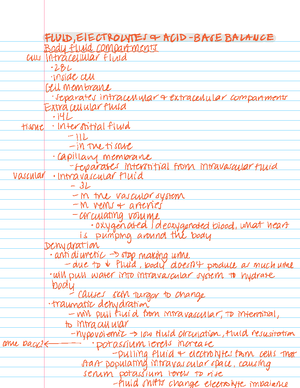 FLUID, ELECTROLYTES & ACID-BASE BALANCE
Body fluid compartments
cells Intracellular fluid
· 28L
· inside cell
Cell membrane
· separates intracellular & extracellular compartments
Extracellular fluid
· 14L
tissue · Interstitial fluid
- 11L
- in the tissue
· Capillary membrane
- separates interstitial from intravascular fluid
vascular · Intravascular fluid
- 3L
- in the vascular system
- in veins & arteries
- circulating volume
· oxygenated/deoxygenated blood, what heart
is pumping around the body
Dehydration
· antidiuretic → stop making urine
- due to ↓ fluid, body doesn't produce as much urine
· will pull water into intravascular system to hydrate
body
- causes skin turgor to change
· traumatic dehydration
- will pull fluid from intravascular, to interstitial,
to intracellular
- hypovolemic → low fluid circulation, fluid resuscitation
come back · potassium levels increase
- pulling fluid & electrolytes from cells that
start populating intravascular space, causing
serum potassium levels to rise
- fluid shifts change electrolyte imbalance